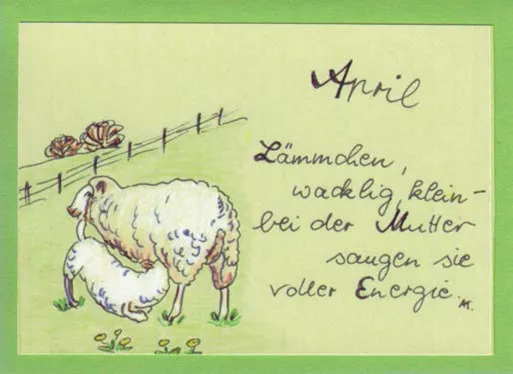 April
Lämmchen,
wacklig, klein-
bei der Mutter
saugen sie
voller Energie.
M.